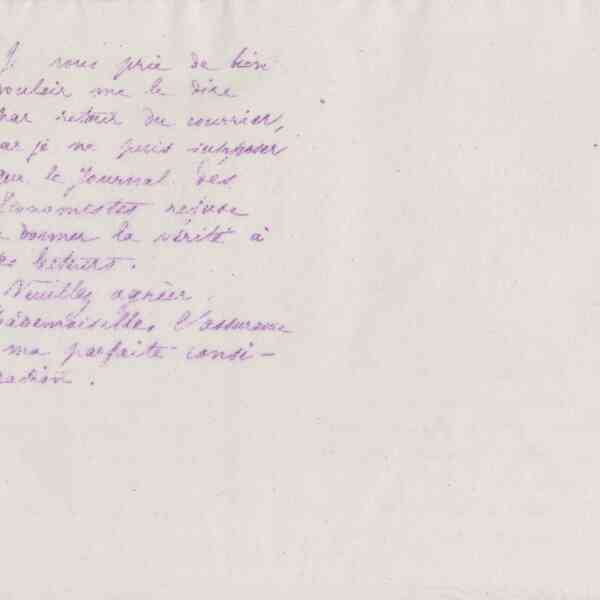 Je vous prie de bien
vouloir me le dire
par retour du courrier,
car je ne puis supposer
que le Journal des
Économistes refuse
de donner la vérité à
ses lecteurs.
Veuillez agréer,
Mademoiselle, l'assurance
ma parfaite consi-
ration.